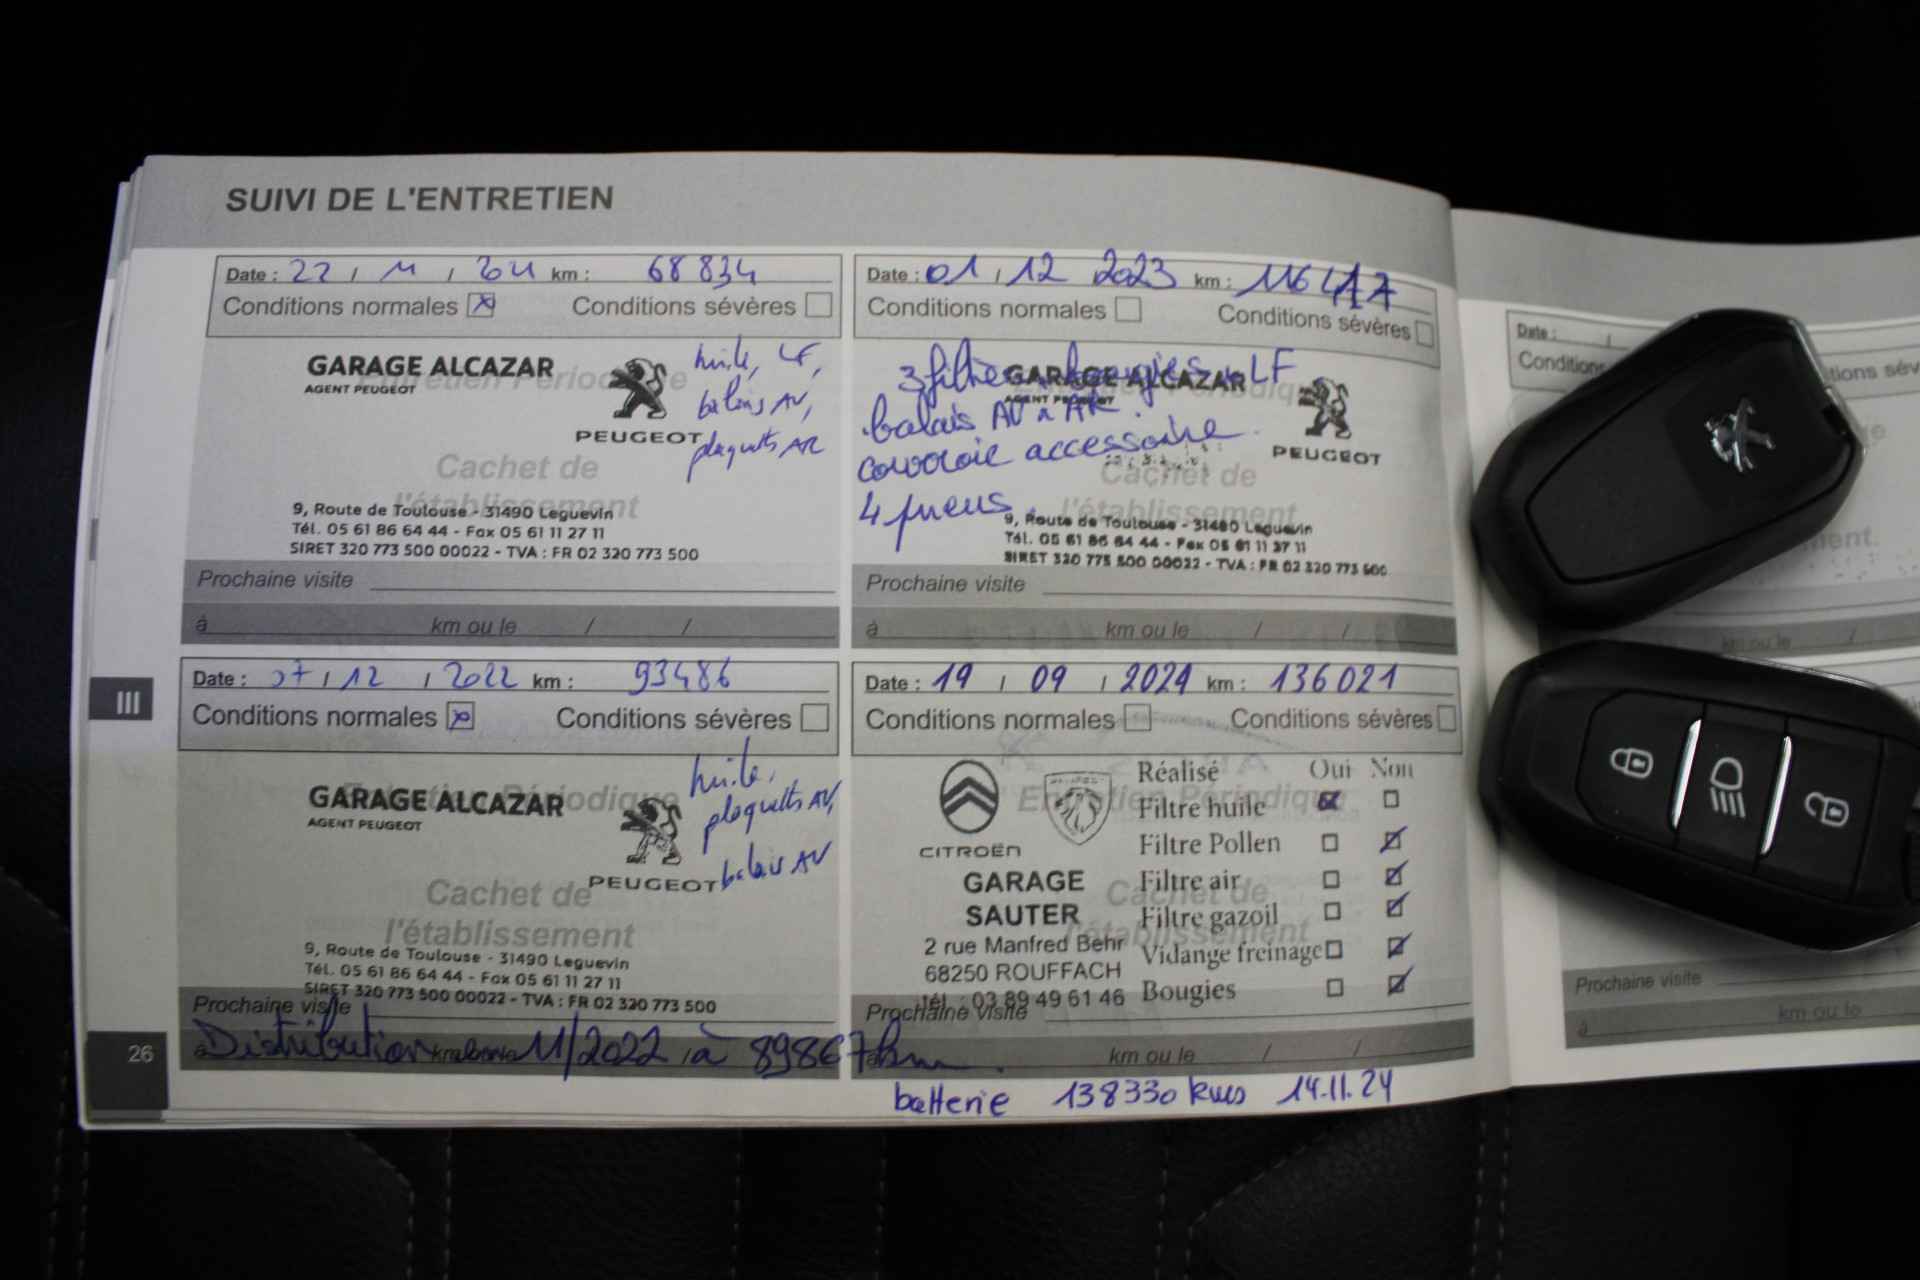 SUIVI DE L'ENTRETIEN
Date : 22 / 11 / km : 68 834
Conditions normales Conditions sévères
GARAGE ALCAZAR
AGENT PEUGEOT
PEUGEOT
huile, LF,
balais AV,
plaquetts AR
Cachet de
l'établissement
9, Route de Toulouse - 31490 Leguevin
Tél. 05 61 86 64 44 - Fax 05 61 11 27 11
SIRET 320 773 500 00022 - TVA : FR 02 320 773 500
Prochaine visite
à km ou le / /
Date : 07 / 12 / 2022 km : 93486
Conditions normales Conditions sévères
Entretien Périodique
GARAGE ALCAZAR
AGENT PEUGEOT
PEUGEOT
huile,
plaquetts AV,
balais AV
Cachet de
l'établissement
9, Route de Toulouse - 31490 Leguevin
Tél. 05 61 86 64 44 - Fax 05 61 11 27 11
SIRET 320 773 500 00022 - TVA : FR 02 320 773 500
Prochaine visite
Distribution 11/2022 à 89867km.
III
26
Date : 01 / 12 2023 km :
Conditions normales Conditions sévères
3 filtres bougies LF
GARAGE ALCAZAR
AGENT PEUGEOT
PEUGEOT
balais AV AR.
courroie accessoire
4 pneus.
Cachet de
l'établissement
9, Route de Toulouse - 31490 Leguevin
Tél. 05 61 86 64 44 - Fax 05 61 11 27 11
SIRET 320 773 500 00022 - TVA : FR 02 320 773 500
Prochaine visite
à km ou le / /
Date : 19 / 09 / 2024 km : 136021
Conditions normales Conditions sévères
Entretien Périodique
CITROËN
GARAGE
SAUTER
2 rue Manfred Behr
68250 ROUFFACH
tél. : 03 89 49 61 46
Réalisé Oui Non
Filtre huile
Filtre Pollen
Filtre air
Filtre gazoil
Vidange freinage
Bougies
Cachet de
l'établissement
Prochaine visite
km ou le / /
batterie 138330 kms 14.11.24
Date : /
Conditions
Prochaine visite
à km ou le